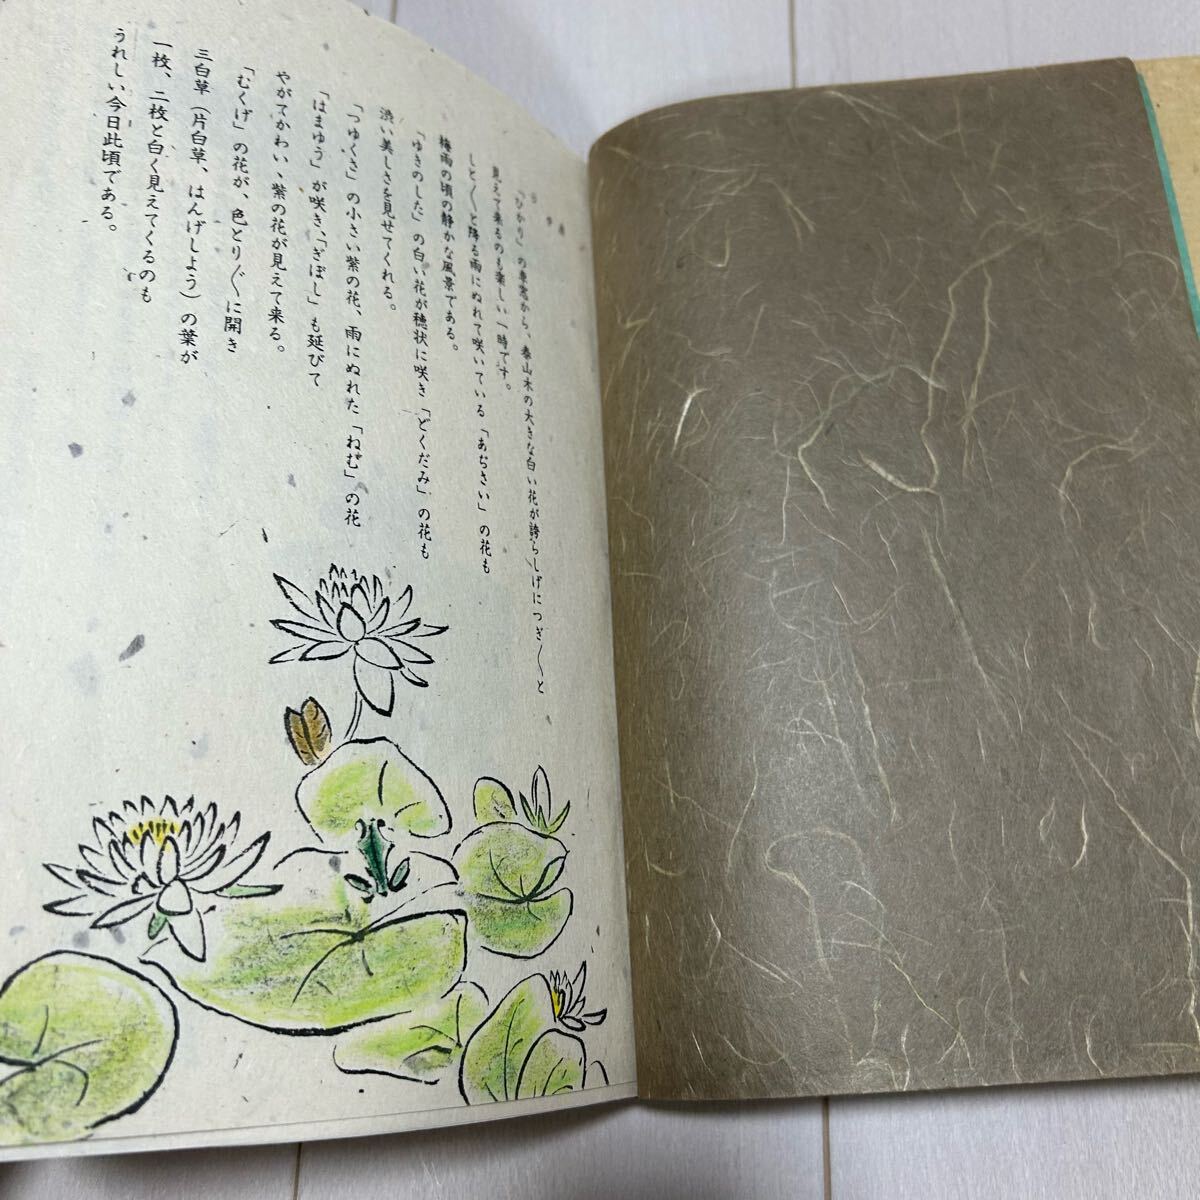 「ひかり」の車窓から、泰山木の大きな白い花が誇らしげにつぎ〱と
見えて来るのも楽しい一時です。
しと〱と降る雨にぬれて咲いている「あぢさい」の花も
梅雨の頃の静かな風景である。
「ゆきのした」の白い花が穂状に咲き「どくだみ」の花も
渋い美しさを見せてくれる。
「つゆくさ」の小さい紫の花、雨にぬれた「ねむ」の花
「はまゆう」が咲き、「ぎぼし」も延びて
やがてかわいゝ紫の花が見えて来る。
「むくげ」の花が、色とり〲に開き
三白草（片白草、はんげしよう）の葉が
一枚、二枚と白く見えてくるのも
うれしい今日此頃である。